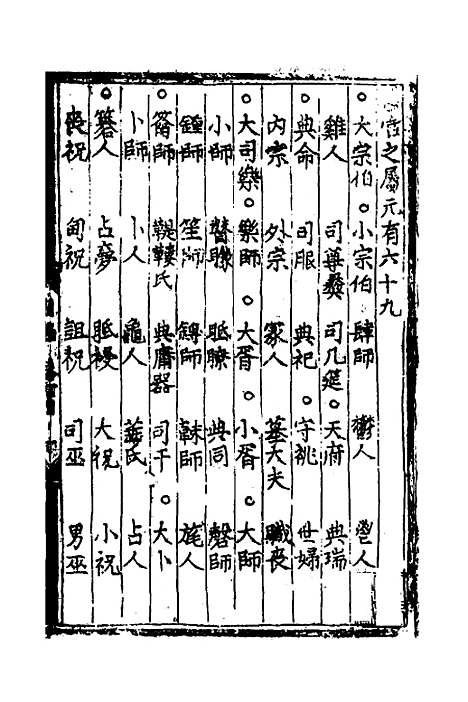 官之屬元有六十九
○大宗伯○小宗伯 肆師 鬱人 鬯人
雞人 司尊彝 司几筵○天府 典瑞
○典命 司服 典祀 ○守祧 世婦
內宗 外宗 冢人 墓大夫 職喪
○大司樂○樂師 ○大胥 ○小胥 ○大師
小師 瞽矇 眡瞭 典同 磬師
鍾師 笙師 鎛師 韎師 旄人
○籥師 鞮鞻氏 典庸器 司干 ○大卜
卜師 卜人 龜人 菙氏 占人
○簭人 占夢 眡祲 大祝 小祝
喪祝 甸祝 詛祝 司巫 男巫